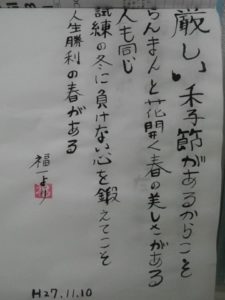 厳しい季節があるからこそ
らんまんと花開く春の美しさがある
人も同じ
試練の冬に負けない心を鍛えてこそ
人生勝利の春がある
福一より
H27.11.10